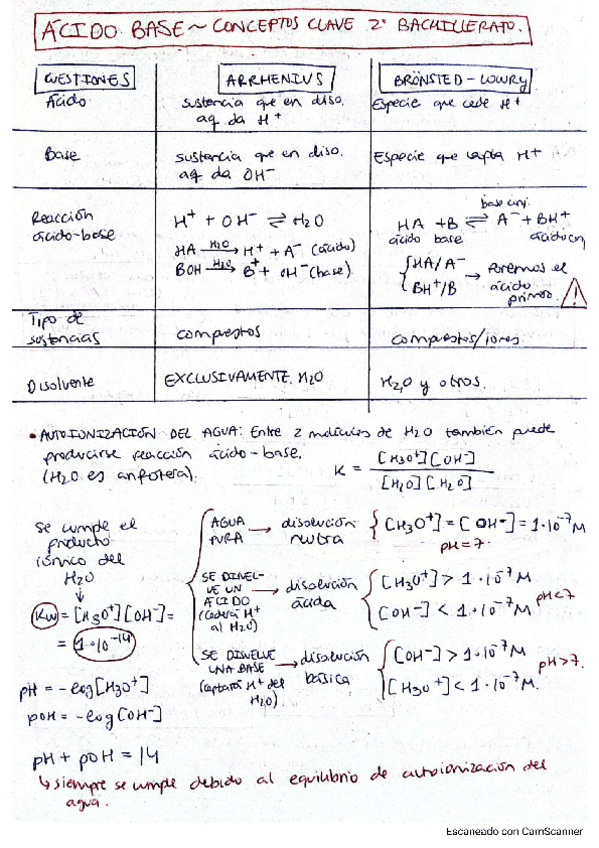 ÁCIDO BASE ~ CONCEPTOS CLAVE 2º BACHILLERATO.
CUESTIONES ARRHENIUS BRÖNSTED-LOWRY
Ácido sustancia que en diso. aq da H⁺ Especie que cede H⁺
Base sustancia que en diso. aq da OH⁻ Especie que capta H⁺
Reacción ácido-base
H⁺ + OH⁻ ⇌ H₂O
HA —H₂O→ H⁺ + A⁻ (ácido)
BOH —H₂O→ B⁺ + OH⁻ (base)
base conj.
HA + B ⇌ A⁻ + BH⁺
ácido base ácido conj
{HA/A⁻ BH⁺/B → Ponemos el ácido primero. !
Tipo de sustancias compuestos compuestos/iones
Disolvente EXCLUSIVAMENTE H₂O H₂O y otros.
• AUTOIONIZACIÓN DEL AGUA: Entre 2 moléculas de H₂O también puede
producirse reacción ácido-base.
(H₂O es anfótera).
K = [H3O⁺][OH⁻] / [H₂O][H₂O]
Se cumple el
producto
iónico del
H₂O
↓
Kw = [H₃O⁺][OH⁻] =
= 1·10⁻¹⁴
AGUA PURA → disolución neutra { [H₃O⁺] = [OH⁻] = 1·10⁻⁷M
pH = 7.
SE DISUELVE UN ÁCIDO (cederá H⁺ al H₂O) → disolución ácida { [H₃O⁺] > 1·10⁻⁷M
[OH⁻] < 1·10⁻⁷M pH<7
SE DISUELVE UNA BASE (captará H⁺ del H₂O). → disolución básica { [OH⁻] > 1·10⁻⁷M
[H₃O⁺] < 1·10⁻⁷M. pH>7.
pH = -log[H₃O⁺]
pOH = -log[OH⁻]
pH + pOH = 14
↳ siempre se cumple debido al equilibrio de autoionización del
agua.
Escaneado con CamScanner